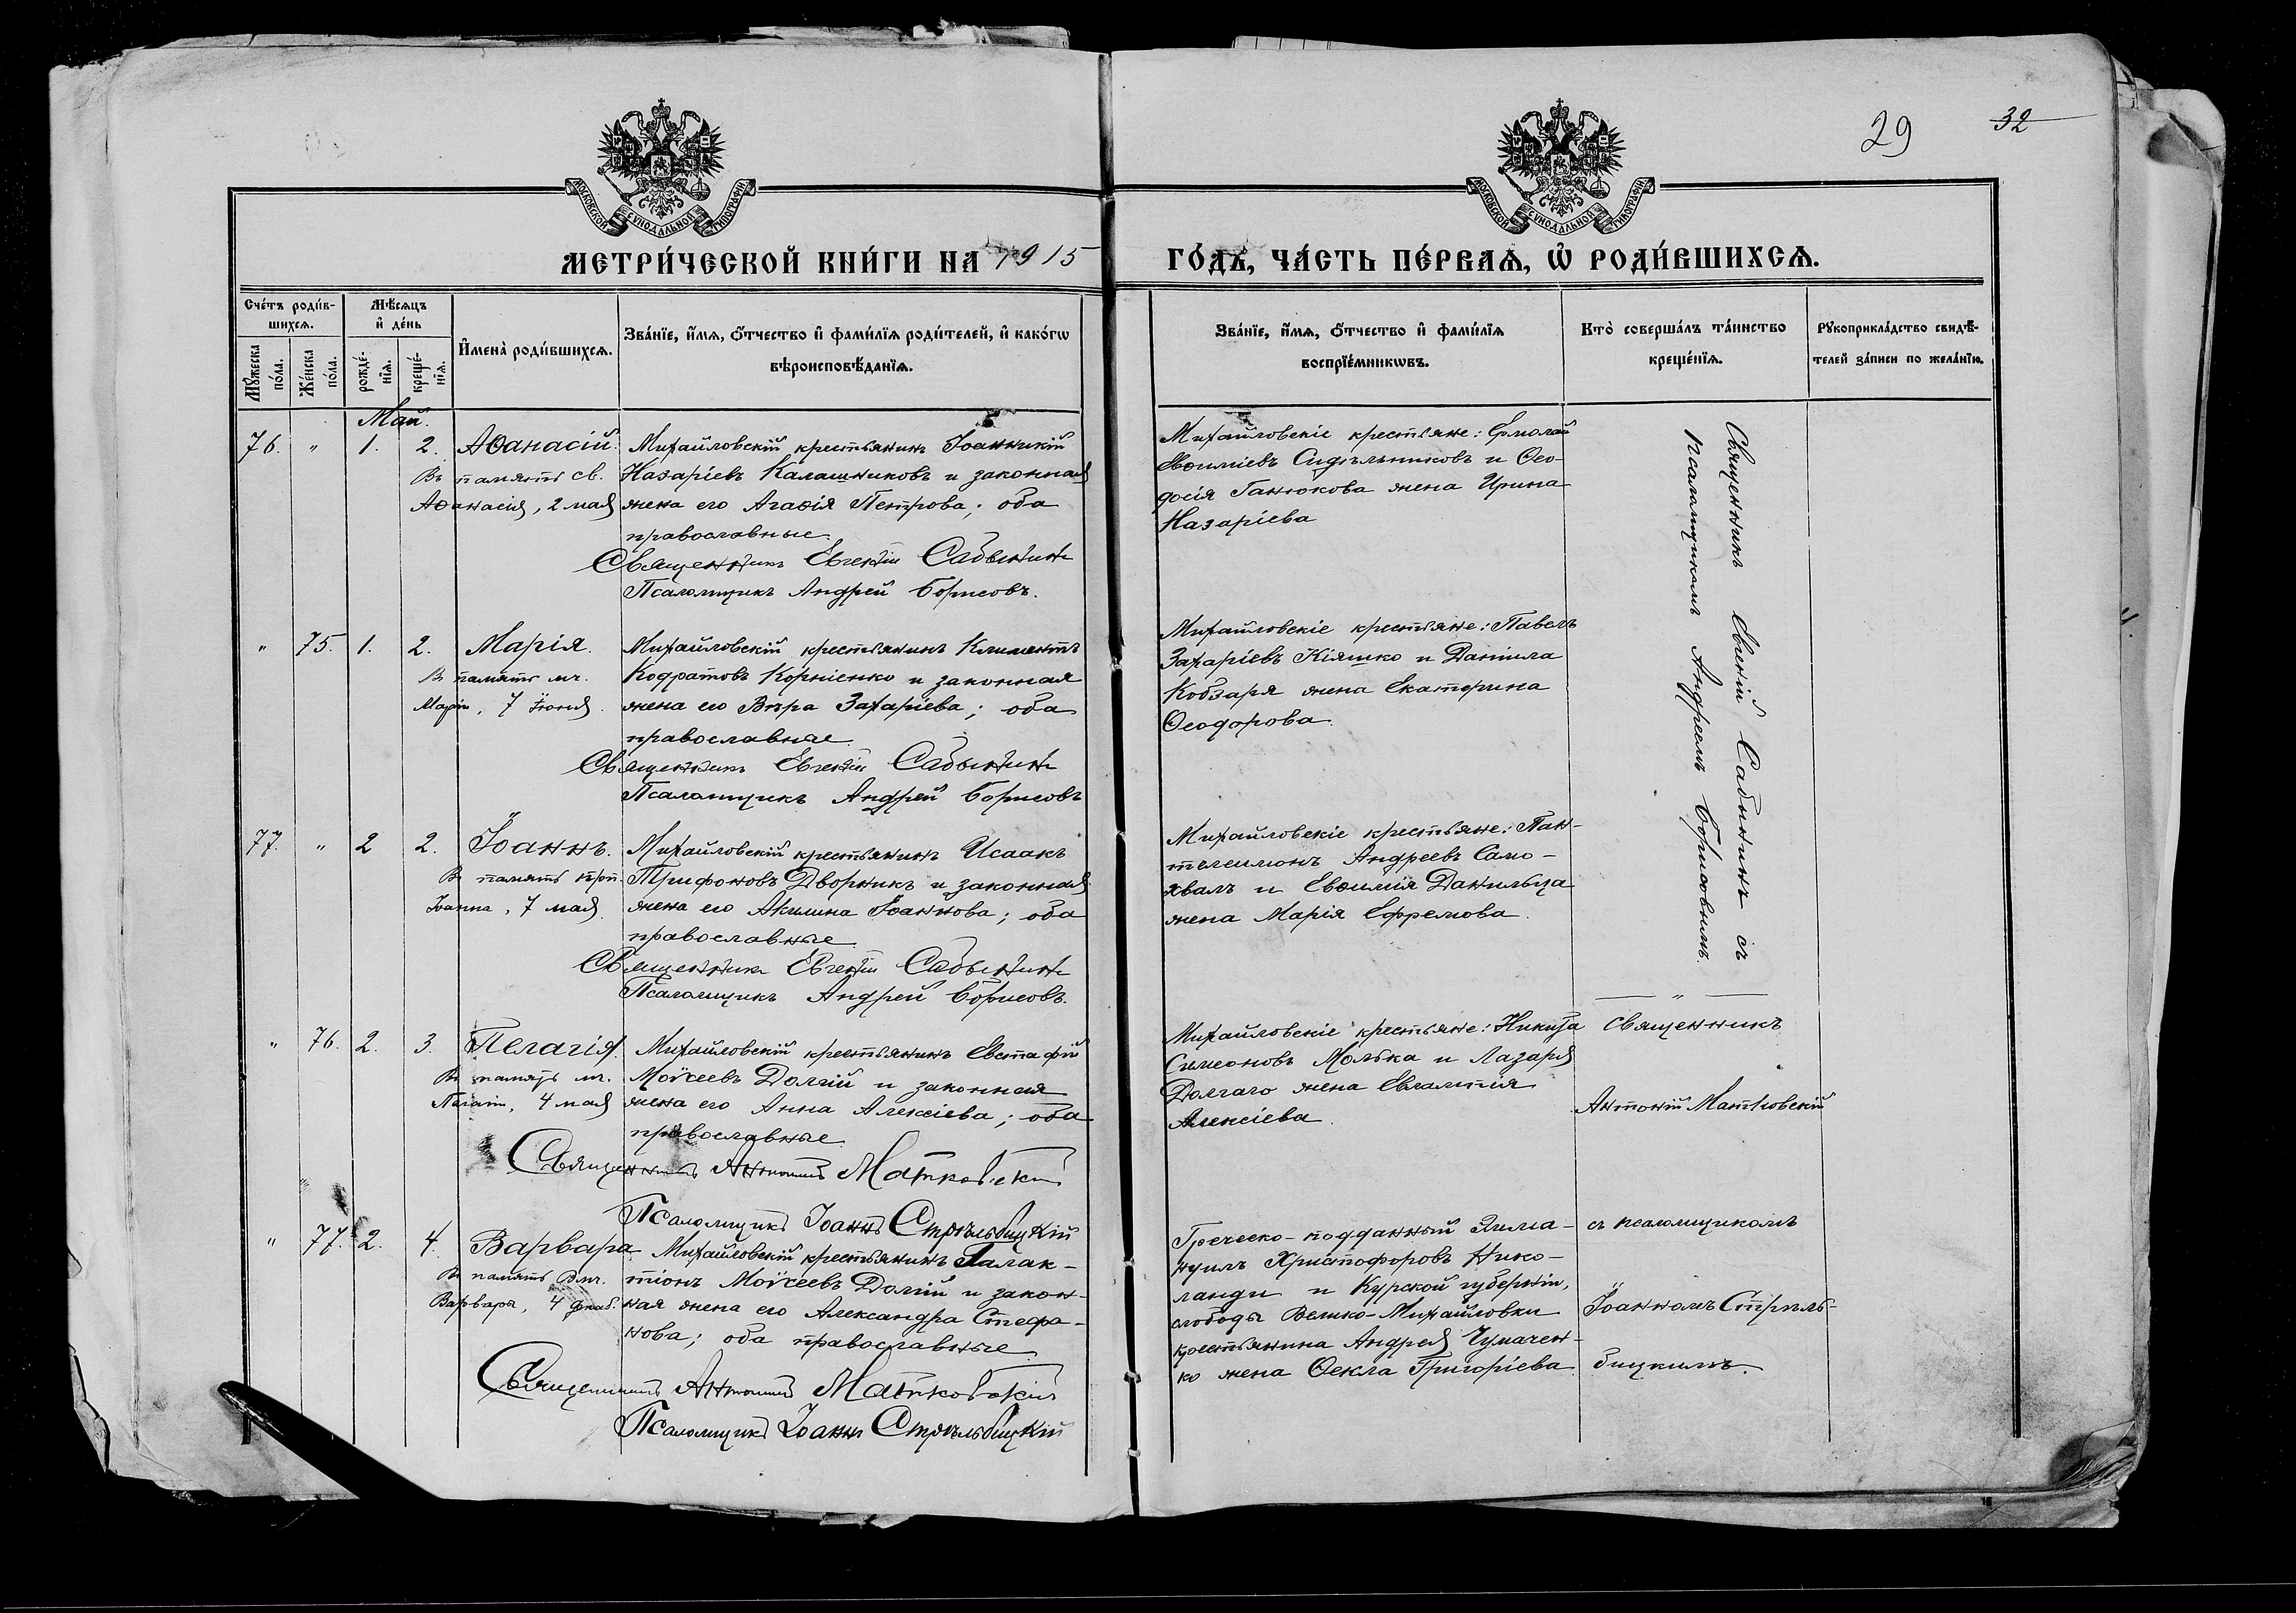 29 32
МОСКОВСКОЙ СѴНОДАЛЬНОЙ ТИПОГРАФІИ
МОСКОВСКОЙ СѴНОДАЛЬНОЙ ТИПОГРАФІИ
МЕТРИ́ЧЕСКОЙ КНИ́ГИ НА 1915 ГО́ДЪ, ЧА́СТЬ ПЕ́РВАѦ, Ѡ҆ РОДИ́ВШИХСѦ.
Сче́тъ роди́в-
шихсѧ.
Мꙋ́жеска по́ла.
Же́нска по́ла.
Мѣ́сѧцъ
и҆ де́нь
рожде́-
нїѧ.
креще́-
нїѧ.
И҆мена̀ роди́вшихсѧ.
Зва́нїе, и҆́мѧ, ѻ҆́тчество и҆ фами́лїѧ роди́телей, и҆ како́гѡ
вѣроисповѣ́данїѧ.
Зва́нїе, и҆́мѧ, ѻ҆́тчество и҆ фами́лїѧ
воспрїе́мникѡвъ.
Кто̀ соверша́лъ та́инство
креще́нїѧ.
Рꙋкоприкла́дство свидѣ́-
телей за́писи по жела́нїю.
Май.
76. " 1. 2. Аѳанасій.
Въ память св.
Аѳанасія, 2 мая
Михайловскій крестьянинъ Іоанникій
Назаріевъ Калашниковъ и законная
жена его Агаѳія Петрова; оба
православные.
Священникъ Евгеній Сабынинъ
Псаломщикъ Андрей Борисовъ.
Михайловскіе крестьяне: Ермолай
Евѳиміевъ Сидѣльниковъ и Ѳео-
досія Ганюкова жена Ирина
Назаріева
Священникъ Евгеній Сабынинъ съ
псаломщикомъ Андреемъ Борисовымъ.
" 75. 1. 2. Марія.
Въ память мч.
Маріи, 7 Іюня.
Михайловскій крестьянинъ Климентъ
Кодратовъ Корніенко и законная
жена его Вѣра Захаріева; оба
православные.
Священникъ Евгеній Сабынинъ
Псаломщикъ Андрей Борисовъ
Михайловскіе крестьяне: Павелъ
Захаріевъ Кіяшко и Даніила
Кобзаря жена Екатерина
Ѳеодорова.
77. " 2 2. Іоаннъ.
Въ память прп.
Іоанна, 7 мая.
Михайловскій крестьянинъ Исаакъ
Трифоновъ Дворникъ и законная
жена его Акилина Іоаннова; оба
православные.
Священникъ Евгеній Сабынинъ
Псаломщикъ Андрей Борисовъ.
Михайловскіе крестьяне: Пан-
телеимонъ Андреевъ Само-
хвалъ и Евѳимія Данильца
жена Марія Ефремова.
— " —
" 76. 2. 3. Пелагія.
Въ память мч.
Пелагіи, 4 мая
Михайловскій крестьянинъ Евстафій
Моѵсеевъ Долгій и законная
жена его Анна Алексіева; оба
православные.
Священникъ Антоній Матковскій
Псаломщикъ Іоаннъ Стрѣльбицкій
Михайловскіе крестьяне: Никита
Симеоновъ Молька и Лазаря
Долгаго жена Евлампія
Алексіева.
Священникъ
Антоній Матковскій
" 77. 2. 4. Варвара
Въ память Вмч.
Варвары, 4 декаб.
Михайловскій крестьянинъ Галак-
тіонъ Моѵсеевъ Долгій и закон-
ная жена его Александра Стефа-
нова; оба православные.
Священникъ Антоній Матковскій
Псаломщикъ Іоаннъ Стрѣльбицкій
Греческо-подданный
Христофоровъ Нико-
ланди и Курской губерніи,
слободы Велико-Михайловки
крестьянина Андрея Чумачен-
ко жена Ѳекла Григоріева.
съ псаломщикомъ
Іоанномъ Стрѣль-
бицкимъ.